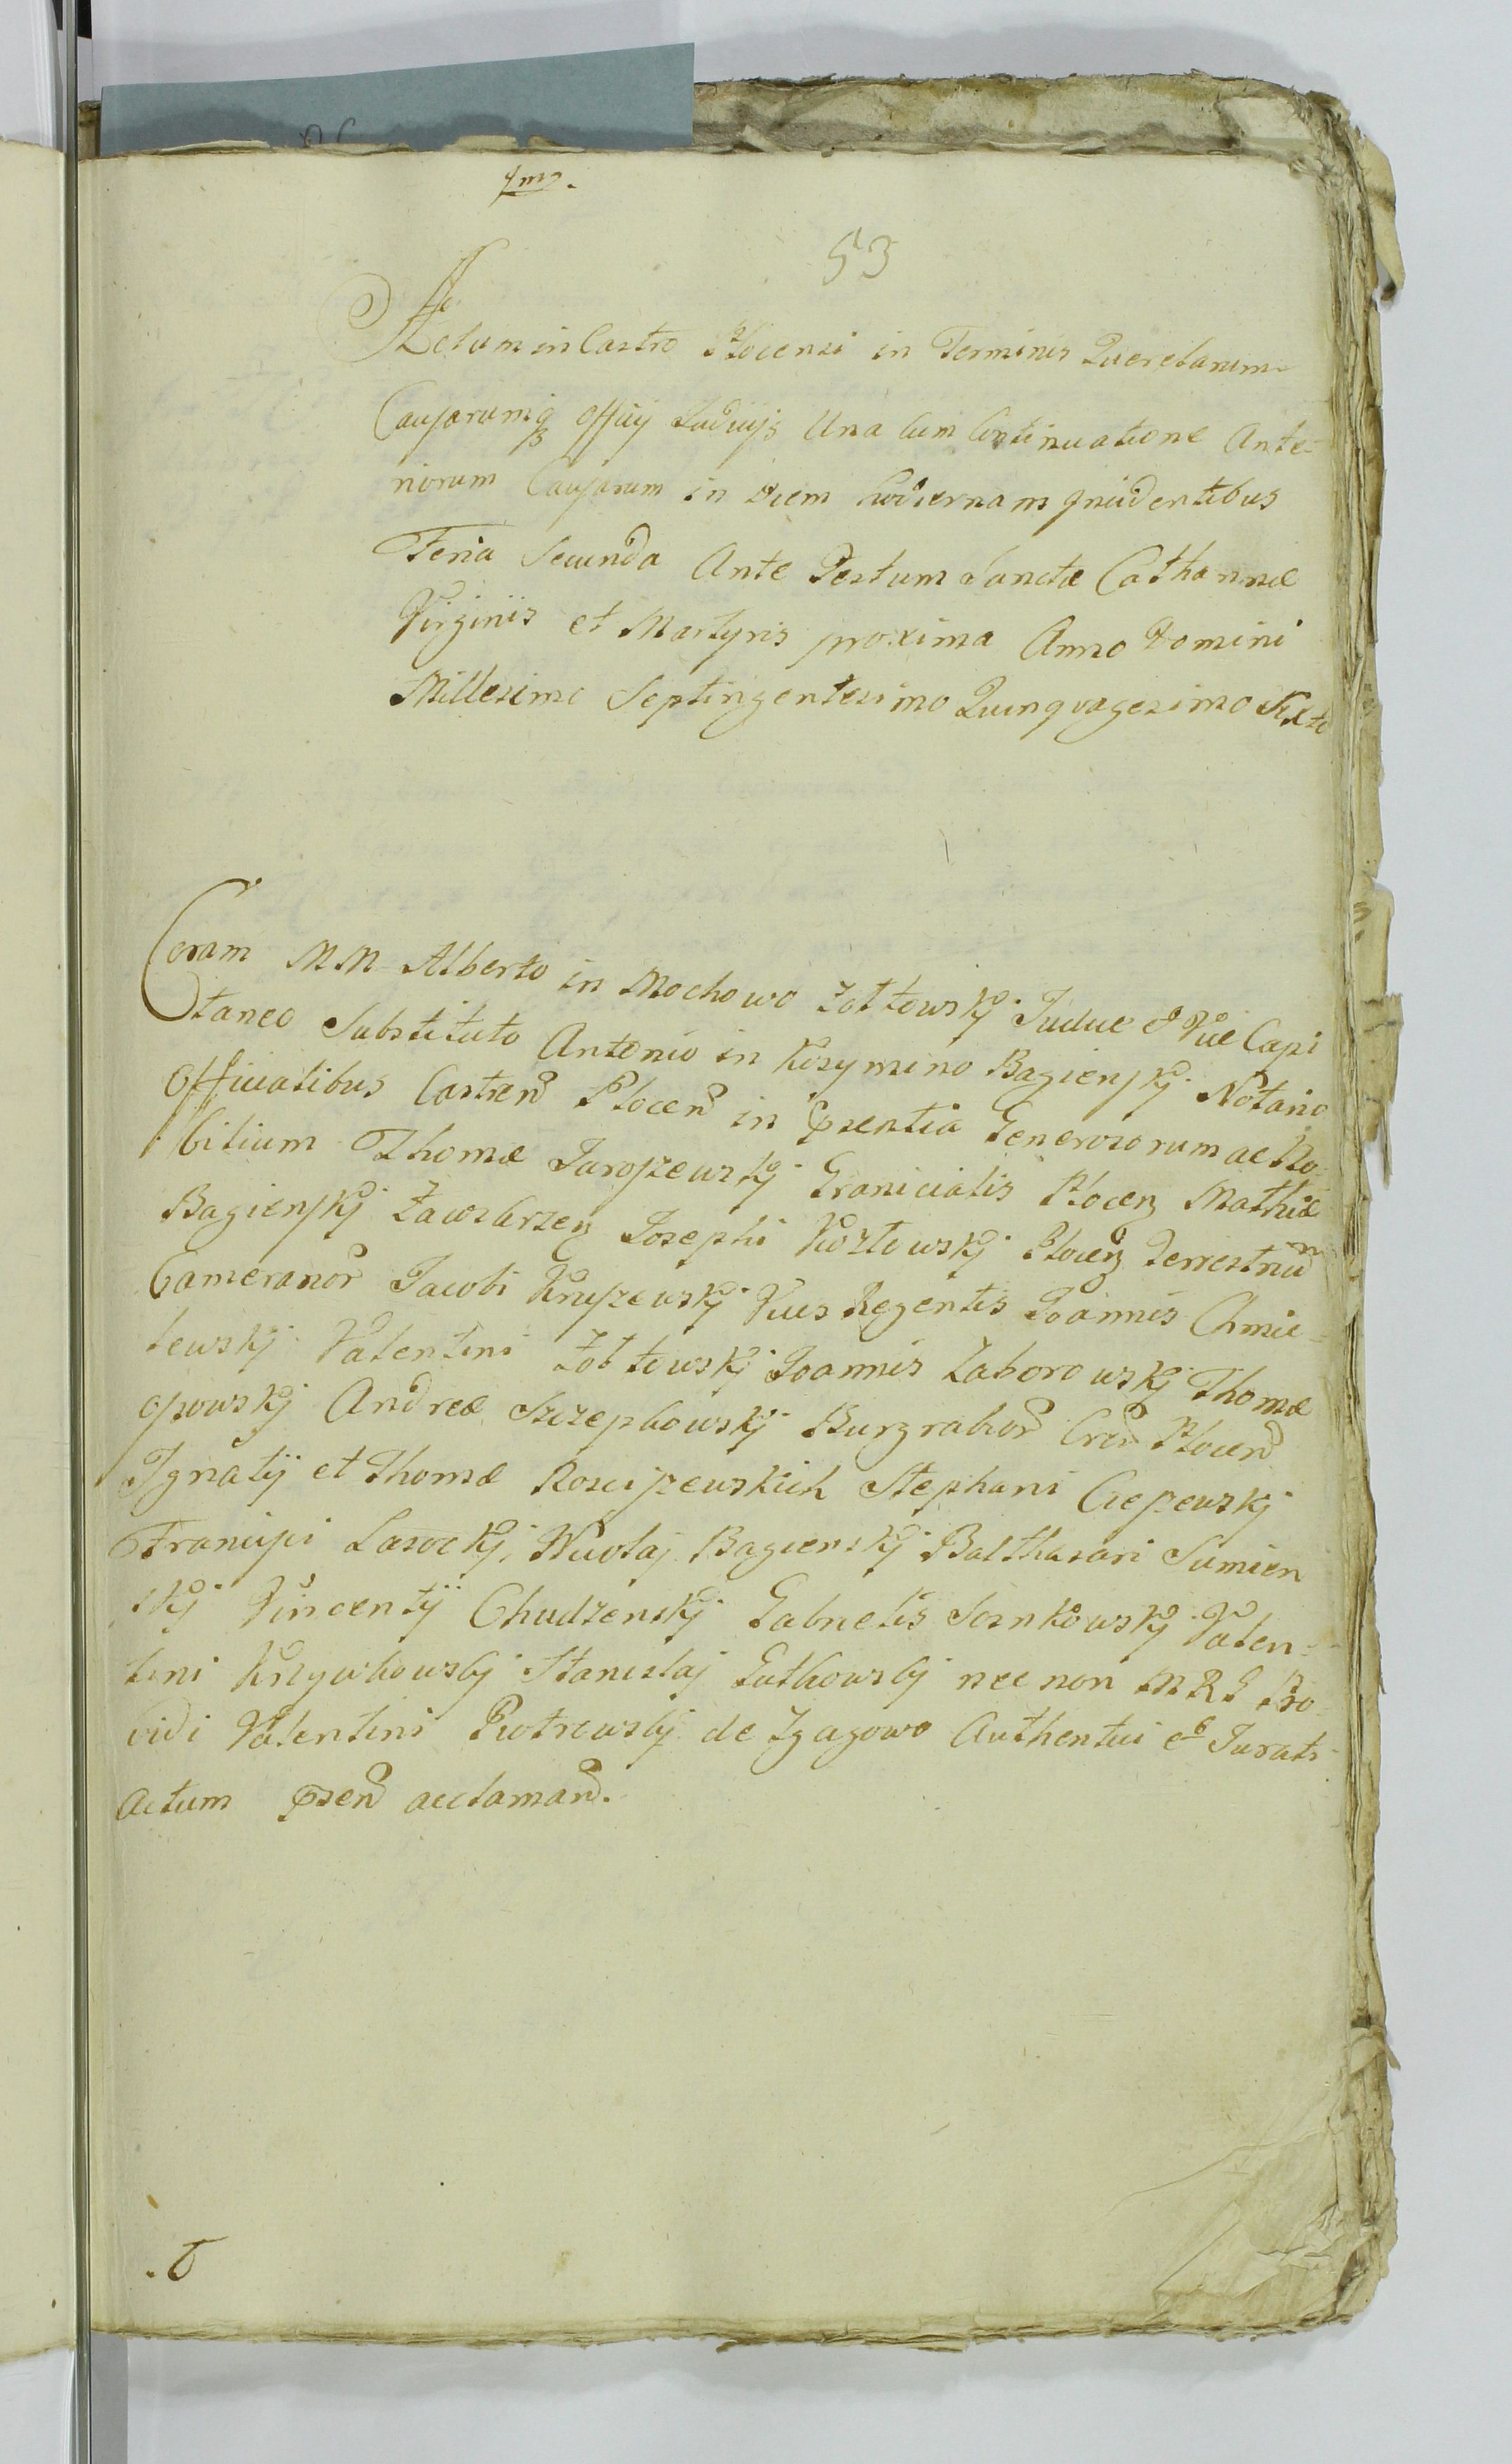 53
Actum in Castro Plocensi in Terminis Querelarum
Causarumq Officij Judicijs Una cum Continuatione Ante-
riorum Causarum in Diem hodiernam incidentibus
Feria Secunda Ante Festum Sanctæ Catharinæ
Virginis et Martyris proxima Anno Domini
Millesimo Septingentesimo Quinquagesimo Sexto
Coram MM Alberto in Mochowo Zołtowskj Judice & Vice Capi
taneo Substituto Antonio in Kozymino Bagienskj Notario
Officialibus Castren Plocen in Pzentia Generosorum ac No
bilium Thomæ Jaroszewskj Granicialis Plocen Mathiæ
Bagienskj Zawsbrzen Josephi Kozłowskj Plocen Terrestriu
Cameranor Jacobi Kruszewskj Vices Regentis Joannis Chmie-
lewskj Valentini Zołtowskj Joannis Zaborowskj Thomæ
Ossowskj Andreæ Szczepkowskj Burgrabior Cren Plocen
Ignatij et Thomæ Rosciszewskich Stephani Cieszewskj
Francisi Lasockj, Nicolaj Bagienskj Balthasari Sumien
skj Vincentij Chudzenskj Gabrielis Sosnkowskj Valen-
tini Krzywkowskj Stanislaj Gutkowskj nec non MRS Pro
vidi Valentini Piotrowskj de Zgagowo Authentici et Jurati
Actum pzen acclaman.